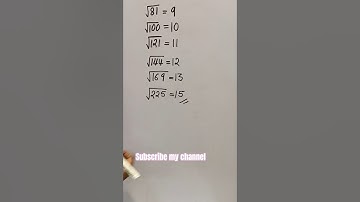 √81 = 9
√100 = 10
√121 = 11
√144 = 12
√169 = 13
√225 = 15
Subscribe my channel